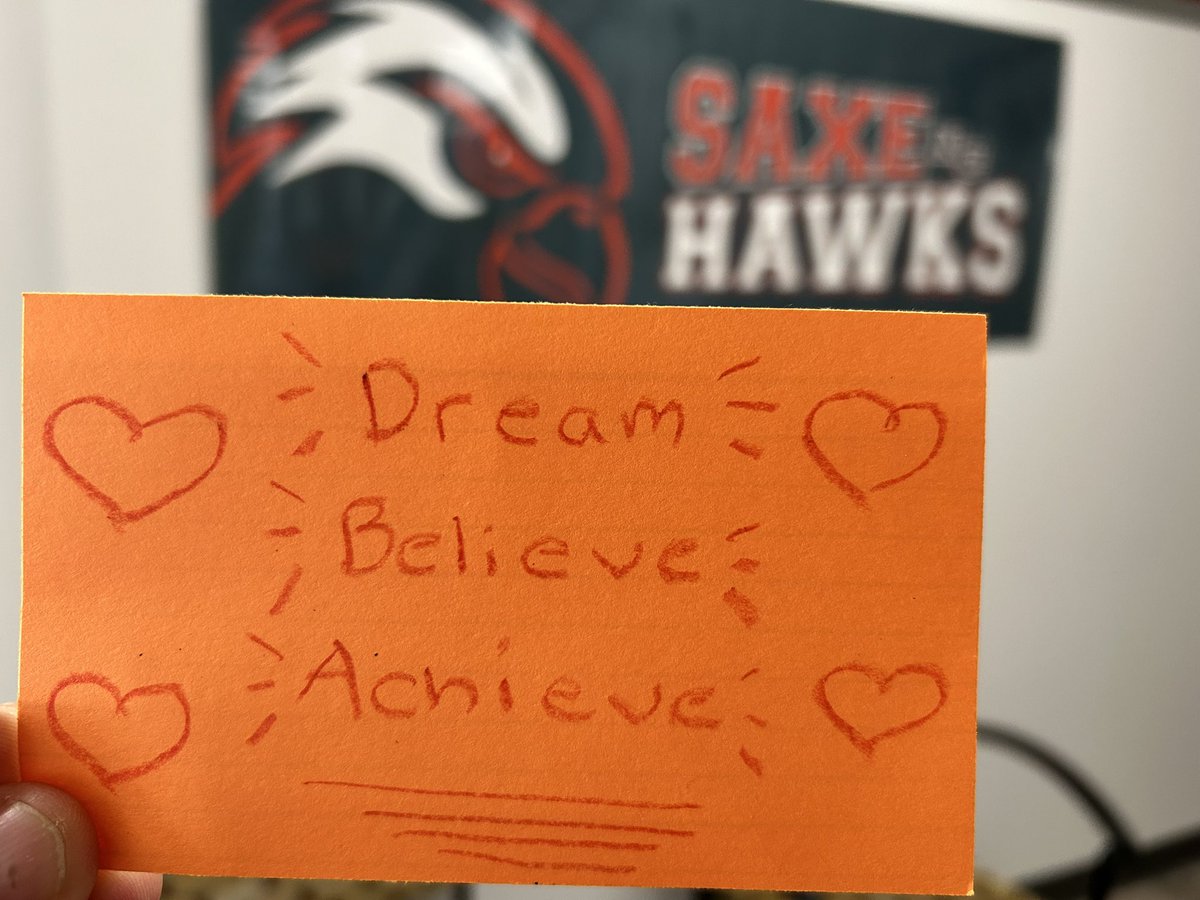 SAXE
HAWKS
Dream
Believe
Achieve